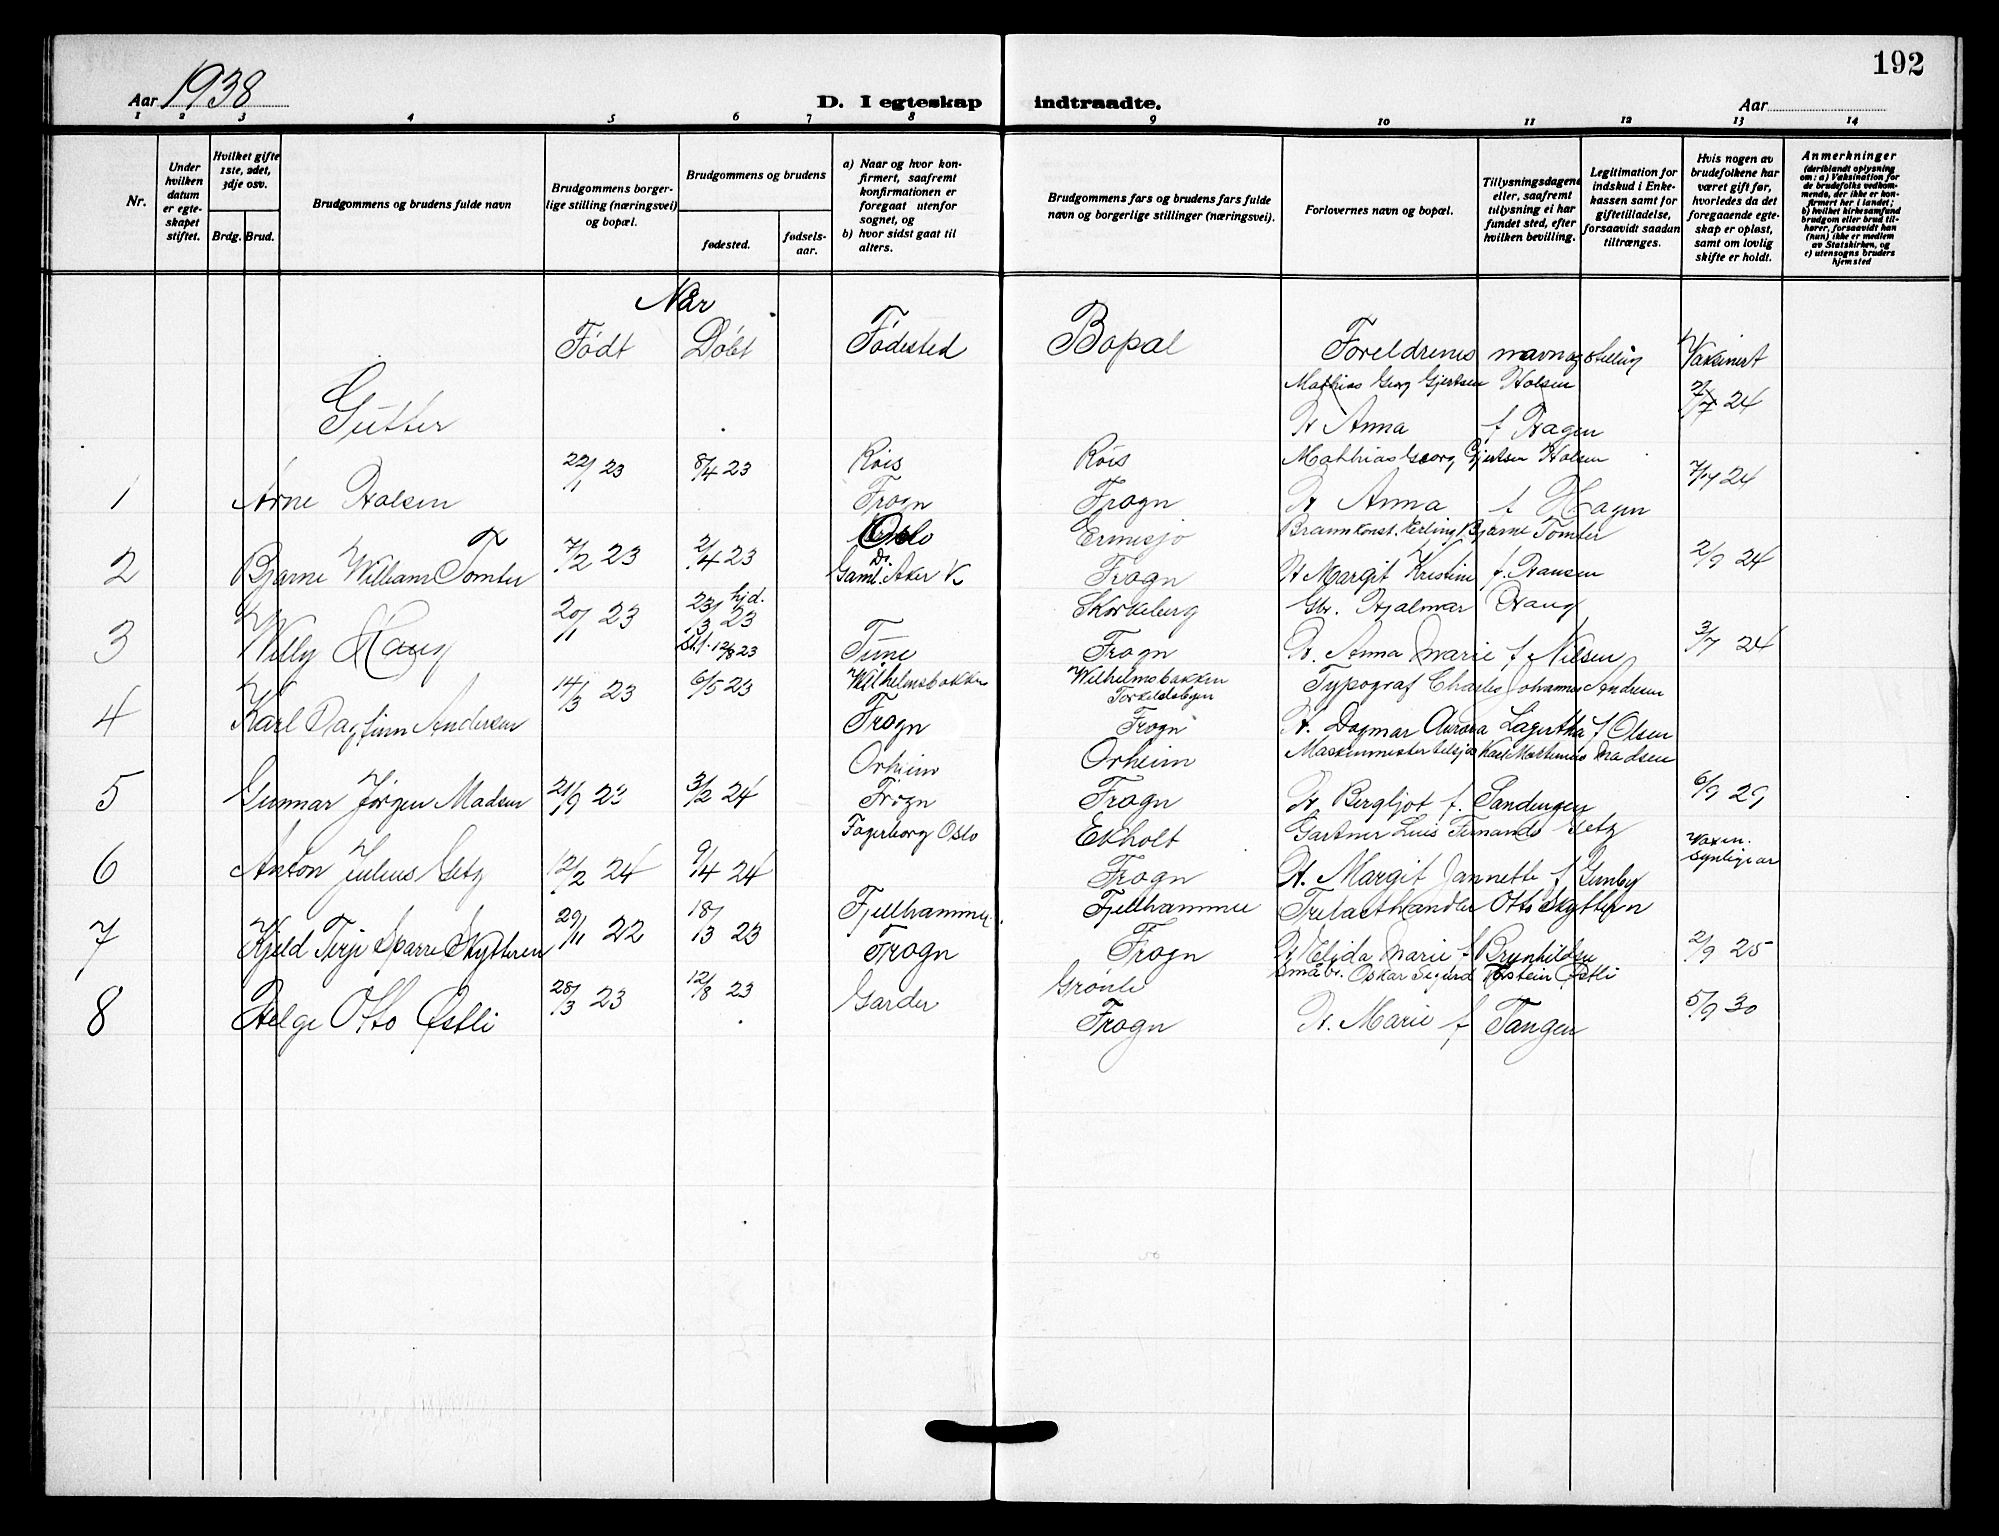 192
Aar 1938
D. I egteskap indtraadte.
Aar
1 2 3 4 5 6 7 8 9 10 11 12 13 14
Nr.
Under hvilken datum er egteskapet stiftet.
Hvilket gifte 1ste, 2det, 3dje osv.
Brdg. Brud.
Brudgommens og brudens fulde navn
Brudgommens borgerlige stilling (næringsvei) og bopæl.
Brudgommens og brudens
fødested.
fødselsaar.
a) Naar og hvor konfirmert, saafremt konfirmationen er foregaat utenfor sognet, og
b) hvor sidst gaat til alters.
Brudgommens fars og brudens fars fulde navn og borgerlige stillinger (næringsvei).
Forlovernes navn og bopæl.
Tillysningsdagene eller, saafremt tillysning ei har fundet sted, efter hvilken bevilling.
Legitimation for indskud i Enkekassen samt for giftetilladelse, forsaavidt saadan tiltrænges.
Hvis nogen av brudefolkene har været gift før, hvorledes da det foregaaende egteskap er opløst, samt om lovlig skifte er holdt.
Anmerkninger
(deriblandt oplysning om: a) Vaksination for de brudefolks vedkommende, der ikke er konfirmert her i landet;
b) hvilket kirkesamfund brudgom eller brud tilhører, forsaavidt han (hun) ikke er medlem av Statskirken, og
c) utensogns bruders hjemsted
Når
Født Döbt Fødested Bopal Foreldrenes navn og stilling Vaksinert
Mathias Georg Gjertsen Holsen
Gutter H Anna f Hagen 24
22/1 23 8/4 23 Röis Röis Mathias Georg Gjertsen Holsen
1 Arne Holsen Frogn Frogn H Anna f Hagen 24
Oslo Ermesjo Brannkonst. Erling Bjarne Tomter
2 Bjarne William Tomter 7/2 23 2/4 23 Gaml. Aker K Frogn H Margit Kristine f. Hansen 2/9 24
20/1 23 23/3 23 hjd. Skorkeberg Gbr. Hjalmar Haug
3 Willy Haug 12/8 23 Tune Frogn H. Anna Marie f Nilsen 3/7 24
14/3 23 6/5 23 Wilhelmsbakken Wilhelmsbakken Typograf Charles Johannes Andresen
4 Karl Dagfinn Andersen Frogn Frogn H. Dagmar Aurora Lagertha f Olsen
Orheim Orheim Maskinmester Karl Madsen
5 Gunnar Jörgen Madsen 21/9 23 3/2 24 Frogn Frogn H. Bergljot f. Sandengen 6/9 29
Fagerborg Oslo Ekholt Gartner Luis Fernando Getz Vaxin.
6 Anton Julius Getz 12/2 24 9/4 24 Frogn H. Margit Jannette f
Fjellhammer Fjellhammer Trelasthandler Otto Skytteren
7 Kjeld Terje Sparre Skytteren 29/11 22 18/3 23 Frogn Frogn H Elida Marie f Brynhildsen 2/9 25
Grönli Småbr. Oskar Sigurd Torstein Østli
8 Helge Otto Østli 28/3 23 12/8 23 Garder Frogn H. Marie f Tangen 5/9 30